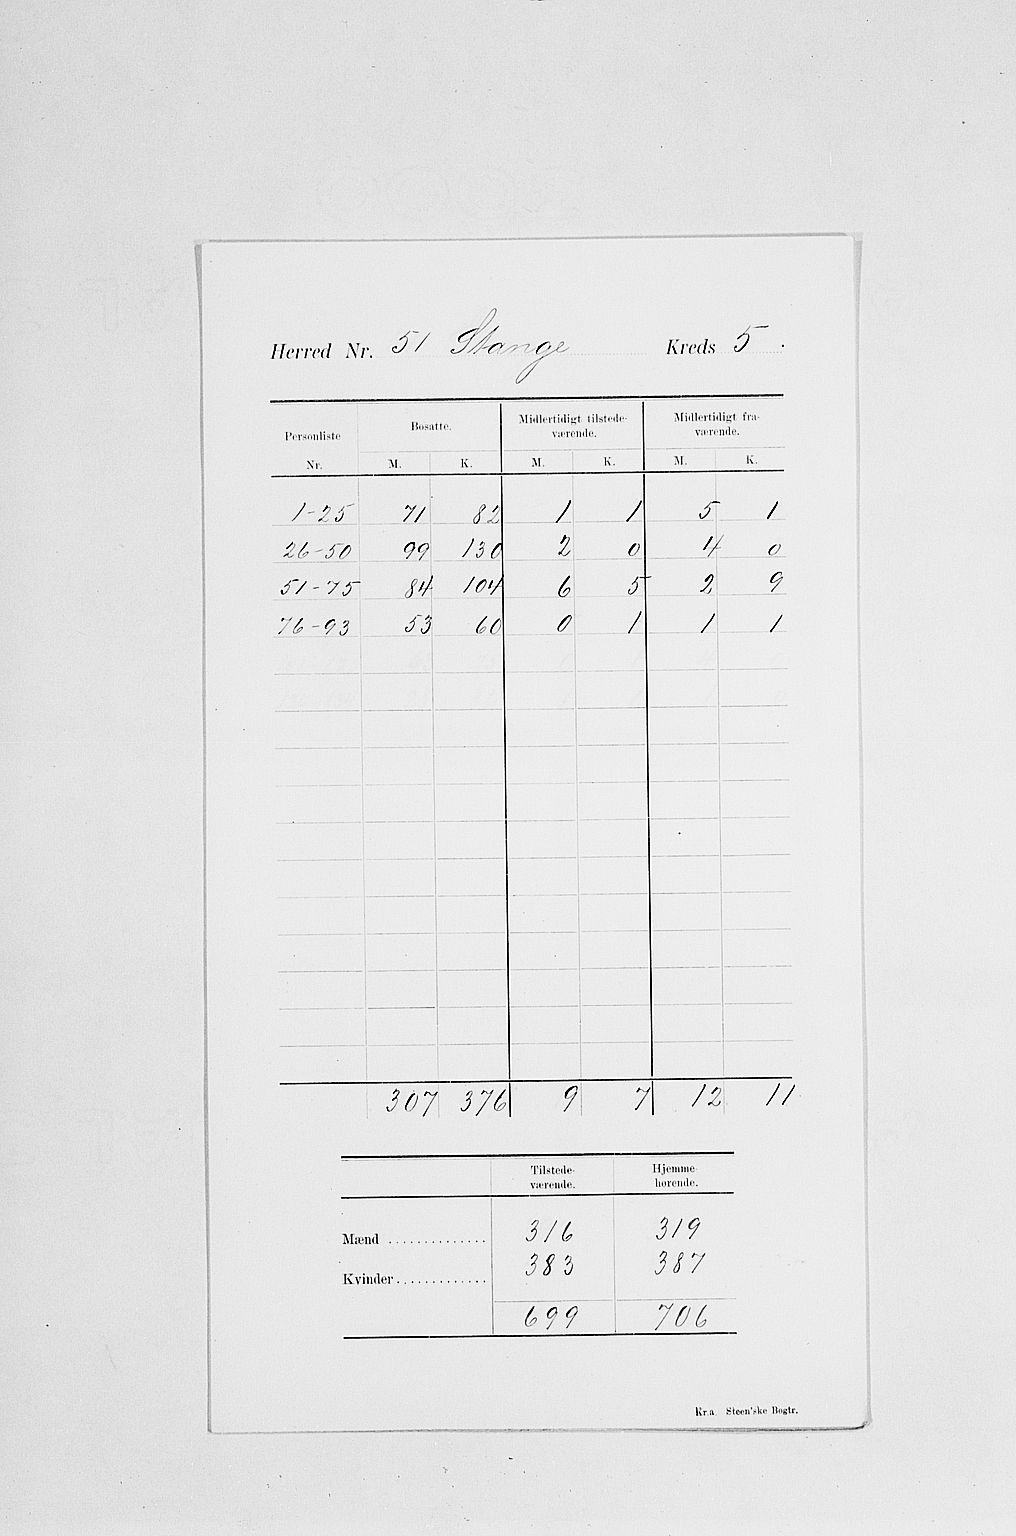 Herred Nr. 51 Stange Kreds 5.
Personliste Nr. Bosatte. Midlertidigt tilstede-værende. Midlertidigt fra-værende.
M. K. M. K. M. K.
1-25 71 82 1 1 5 1
26-50 99 130 2 0 4 0
51-75 84 104 6 5 2 9
76-93 53 60 0 1 1 1
307 376 9 7 12 11
Tilstede-værende. Hjemme-hørende.
Mænd .............. 316 319
Kvinder............. 383 387
699 706
Kr.a. Steen'ske Bogtr.